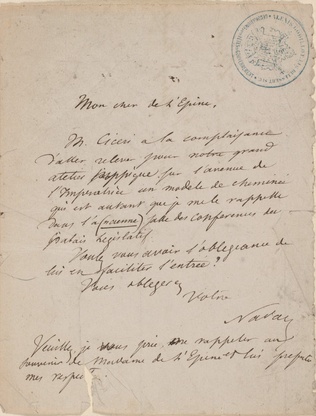 Mon cher de l'Epine,
M. Ciceri a la complaisance
d'aller relever pour notre grand
atelier sur l'avenue de
l'Impératrice un modèle de cheminée
qui est autant que je me le rappelle
dans l'ancienne salle des Conférences du
Palais Législatif.
Voulez vous avoir l'obligeance de
lui en faciliter l'entrée?
Vous obligerez
Votre
Nadar
Veuillez je vous prie me rappeler au
souvenir de Madame de l'Epine et lui
mes respects.